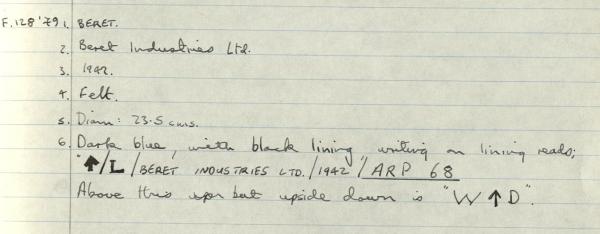 F.128'79 1. BERET.
2. Beret Industries Ltd.
3. 1942.
4. Felt.
5. Diam: 23.5 cms.
6. Dark blue, with black lining, writing on lining reads;
"↑/L/BERET INDUSTRIES LTD./1942/ARP 68
Above this but upside down is "W↑D".